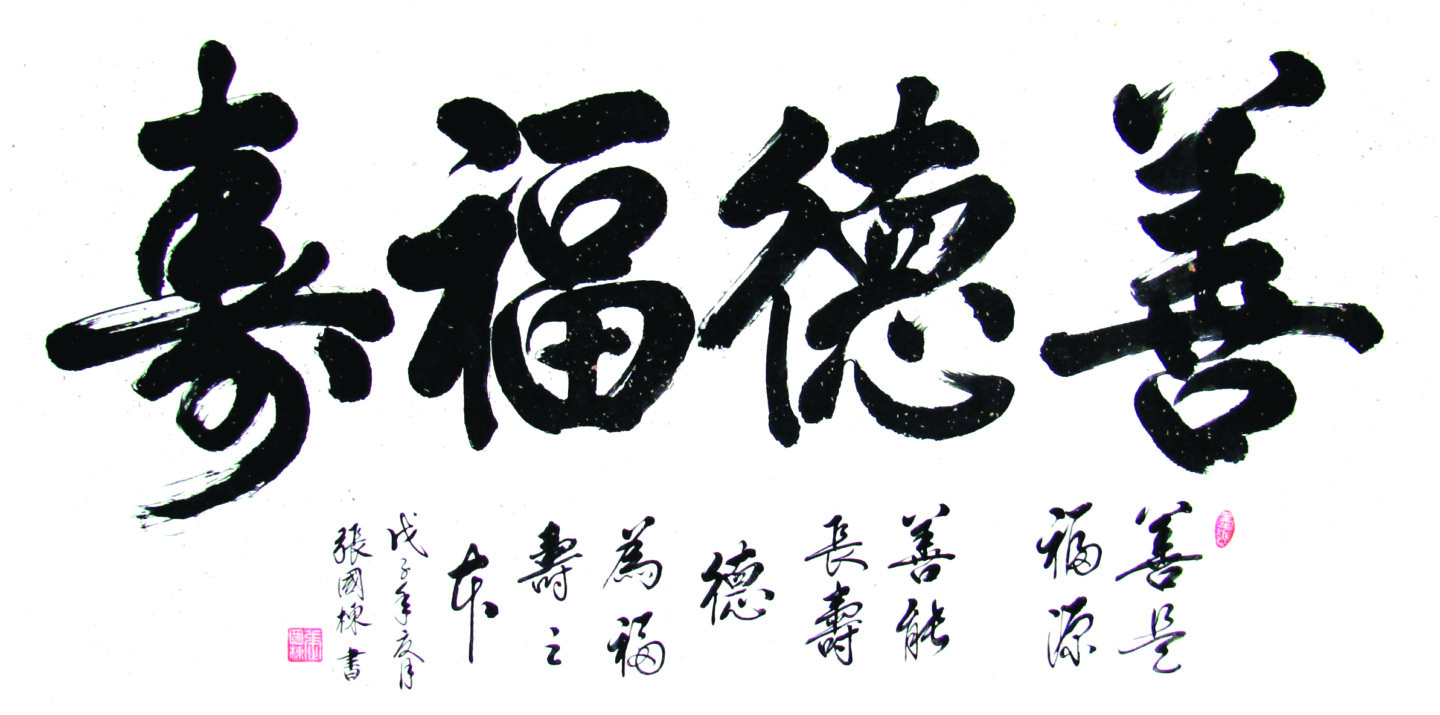 善德福寿
善是
福源
善能
長壽
德
為福
壽之
本
戊子年夜月
張國棟書
張國棟